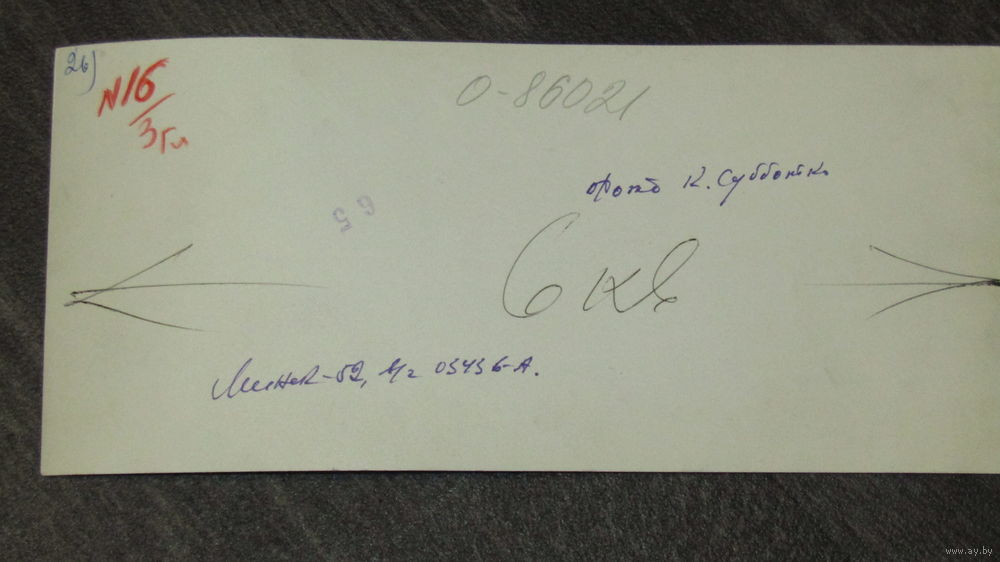 26)
N16
3 Гл
0-86021
фото К. Субботк
6 5
6 кв
Минск-52, 03436-А.
www.ay.by